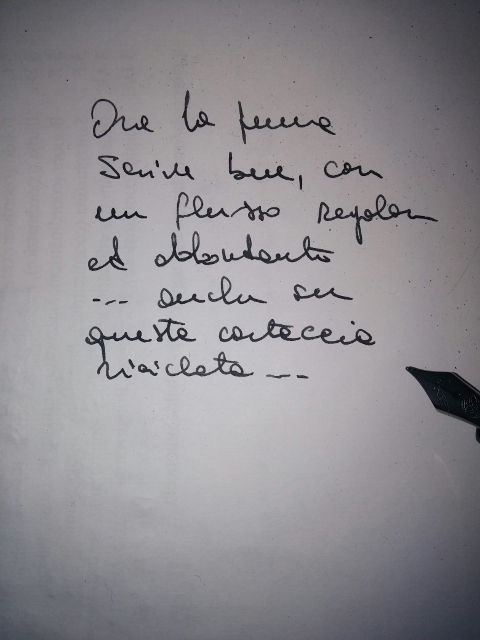 Ora la penna
scrive bene, con
un flusso regolare
ed abbondante
... anche su
questa cartaccia
riciclata ...